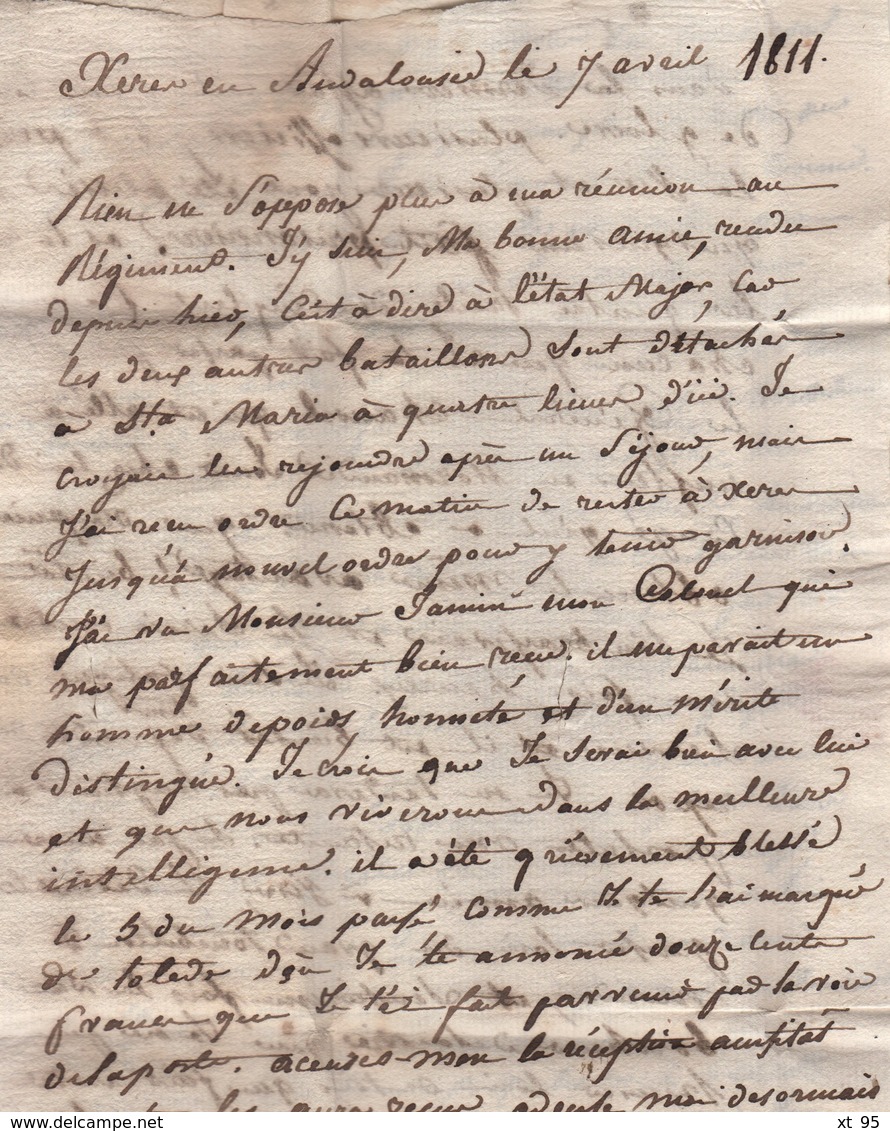 Xeres en Andalousie le 7 avril 1811.
Rien ne s'oppose plus à ma réunion au
Régiment. J'y suis, Ma bonne amie, rendu
depuis hier, C'est à dire à l'état Major, Car
les deux autres bataillons sont détachés
à Sta Maria à quatre lieues d'ici. Je
croyais les rejoindre après un séjour, mais
J'ai recu ordre Ce matin de rester à Xeres
Jusqu'à nouvel ordre pour y tenir garnison.
J'ai vu Monsieur Jamin mon Colonel qui
ma parfaitement bien recu. il me parait un
homme de poids honnête et d'un mérite
distingué. Je crois que Je serai bien avec lui
et que nous vivrons dans la meilleure
intelligence. il a été grièvement blessé
le 5 du mois passé comme Je te l'ai marqué
de tolede d'où Je t'ai annoncé douze cents
francs que Je t'ai fait parvenir par la voie
de la poste. accuses-mon la réception aussitôt
les aura recu adresse moi desormais
www.delcampe.net
xt_95